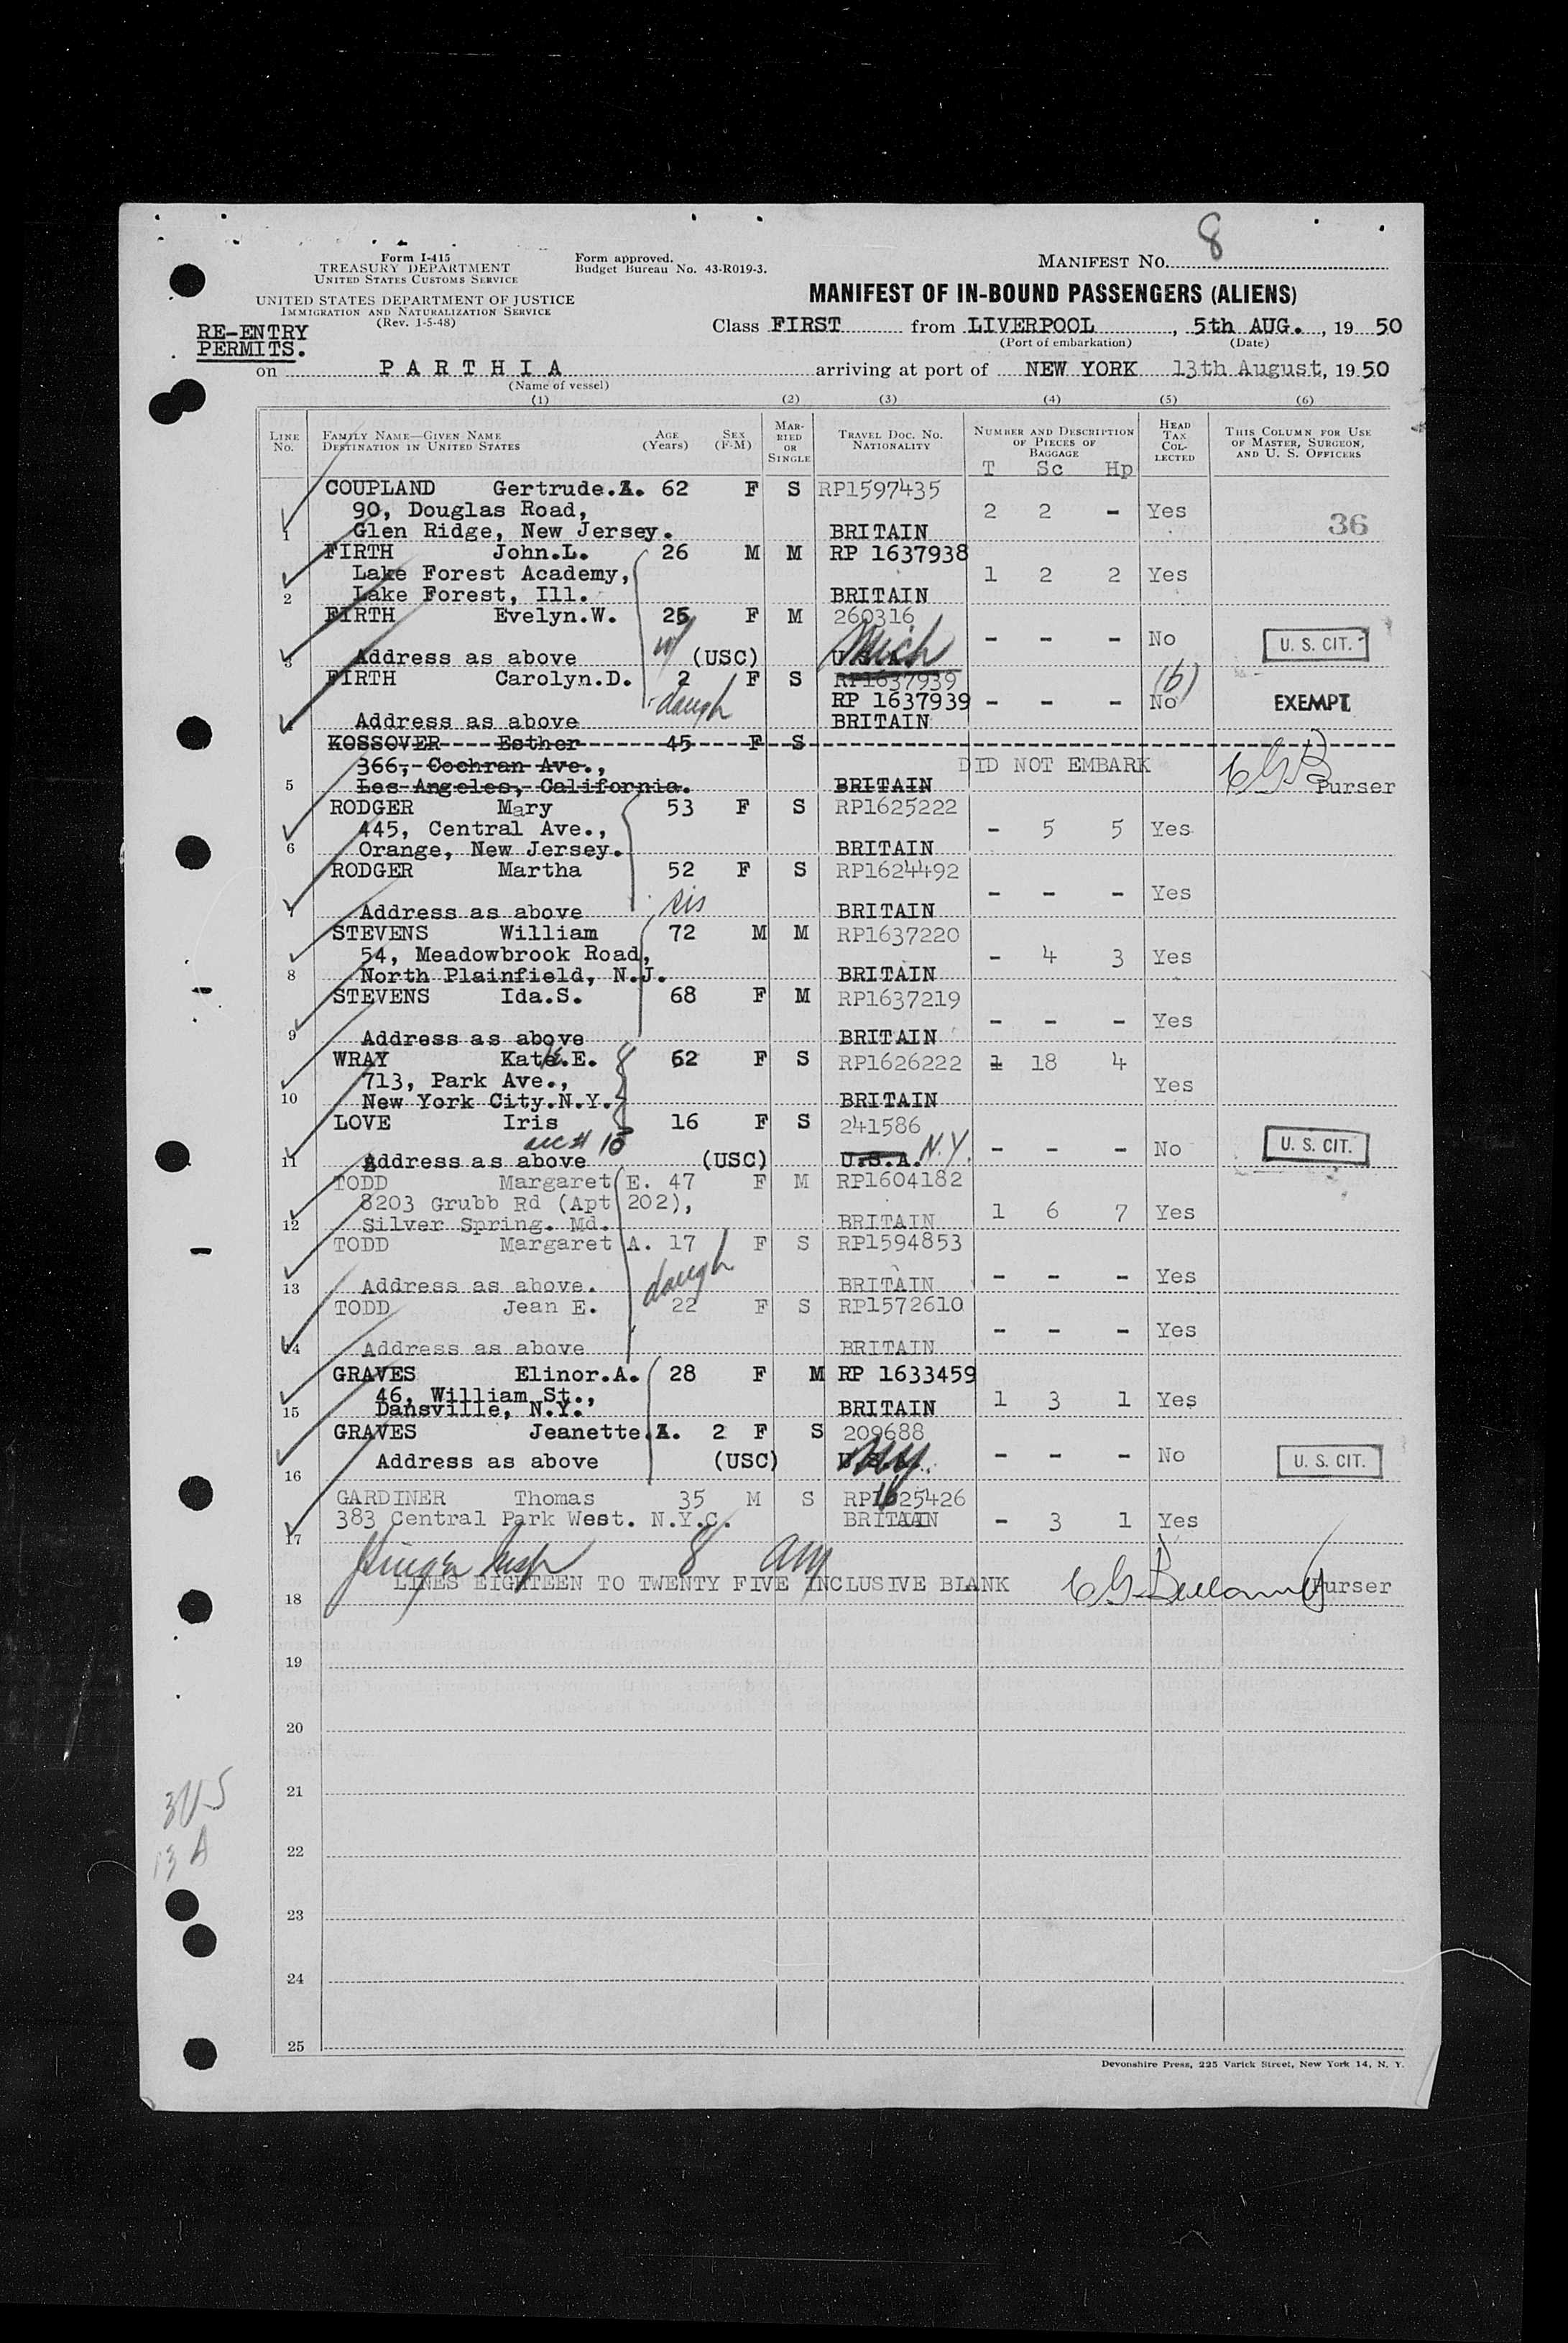 8
Form I-415
TREASURY DEPARTMENT
UNITED STATES CUSTOMS SERVICE
Form approved.
Budget Bureau No. 43-R019-3.
MANIFEST NO.
UNITED STATES DEPARTMENT OF JUSTICE
IMMIGRATION AND NATURALIZATION SERVICE
(Rev. 1-5-48)
MANIFEST OF IN-BOUND PASSENGERS (ALIENS)
RE-ENTRY
PERMITS.
Class FIRST from LIVERPOOL, 5th AUG., 19 50
(Port of embarkation) (Date)
on PARTHIA arriving at port of NEW YORK 13th August, 19 50
(Name of vessel)
(1) (2) (3) (4) (5) (6)
LINE NO. FAMILY NAME—GIVEN NAME DESTINATION IN UNITED STATES AGE (YEARS) SEX (F-M) MARRIED OR SINGLE TRAVEL DOC. NO. NATIONALITY NUMBER AND DESCRIPTION OF PIECES OF BAGGAGE HEAD TAX COLLECTED THIS COLUMN FOR USE OF MASTER, SURGEON, AND U. S. OFFICERS
T Sc Hp
COUPLAND Gertrude. 62 F S RP1597435
90, Douglas Road, 2 2 - Yes 36
1 Glen Ridge, New Jersey. BRITAIN
FIRTH John.L. 26 M M RP 1637938
Lake Forest Academy, 1 2 2 Yes
2 Lake Forest, Ill. BRITAIN
FIRTH Evelyn.W. 25 F M 260316
w/ Mich - - - No U. S. CIT.
3 Address as above (USC) U.S.A.
FIRTH Carolyn.D. 2 F S RP1637939 (b)
daugh RP 1637939 - - - No EXEMPT
4 Address as above BRITAIN
KOSSOVER Esther 45 F S
366, Cochran Ave., DID NOT EMBARK CGB
5 Los Angeles, California. BRITAIN Purser
RODGER Mary 53 F S RP1625222
445, Central Ave., - 5 5 Yes
6 Orange, New Jersey. BRITAIN
RODGER Martha 52 F S RP1624492
sis - - - Yes
7 Address as above BRITAIN
STEVENS William 72 M M RP1637220
54, Meadowbrook Road, - 4 3 Yes
8 North Plainfield, N.J. BRITAIN
STEVENS Ida.S. 68 F M RP1637219
- - - Yes
9 Address as above BRITAIN
WRAY Kate.E. 62 F S RP1626222 1 18 4
713, Park Ave., Yes
10 New York City.N.Y. BRITAIN
LOVE Iris 16 F S 241586
- - - No U. S. CIT.
11 Address as above (USC) U.S.A. N.Y.
TODD Margaret E. 47 F M RP1604182
8203 Grubb Rd (Apt 202), 1 6 7 Yes
12 Silver Spring. Md. BRITAIN
TODD Margaret A. 17 F S RP1594853
daugh
13 Address as above. BRITAIN - - - Yes
TODD Jean E. 22 F S RP1572610
- - - Yes
14 Address as above BRITAIN
GRAVES Elinor.A. 28 F M RP 1633459
46, William St., 1 3 1 Yes
15 Dansville, N.Y. BRITAIN
GRAVES Jeanette. 2 F S 209688
Address as above (USC) NY - - - No U. S. CIT.
16
GARDINER Thomas 35 M S RP1625426
383 Central Park West. N.Y.C. BRITAIN - 3 1 Yes
17
8 am
LINES EIGHTEEN TO TWENTY FIVE INCLUSIVE BLANK Purser
18
19
20
21
3US
22
13 A
23
24
25
Devonshire Press, 225 Varick Street, New York 14, N. Y.